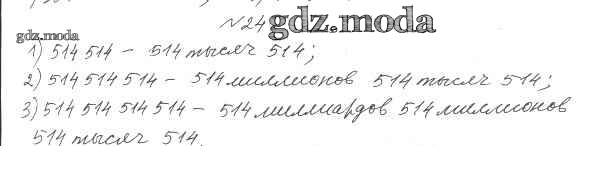 №24 gdz.moda
gdz.moda
1) 514 514 – 514 тысяч 514;
2) 514 514 514 – 514 миллионов 514 тысяч 514;
3) 514 514 514 514 – 514 миллиардов 514 миллионов
514 тысяч 514.